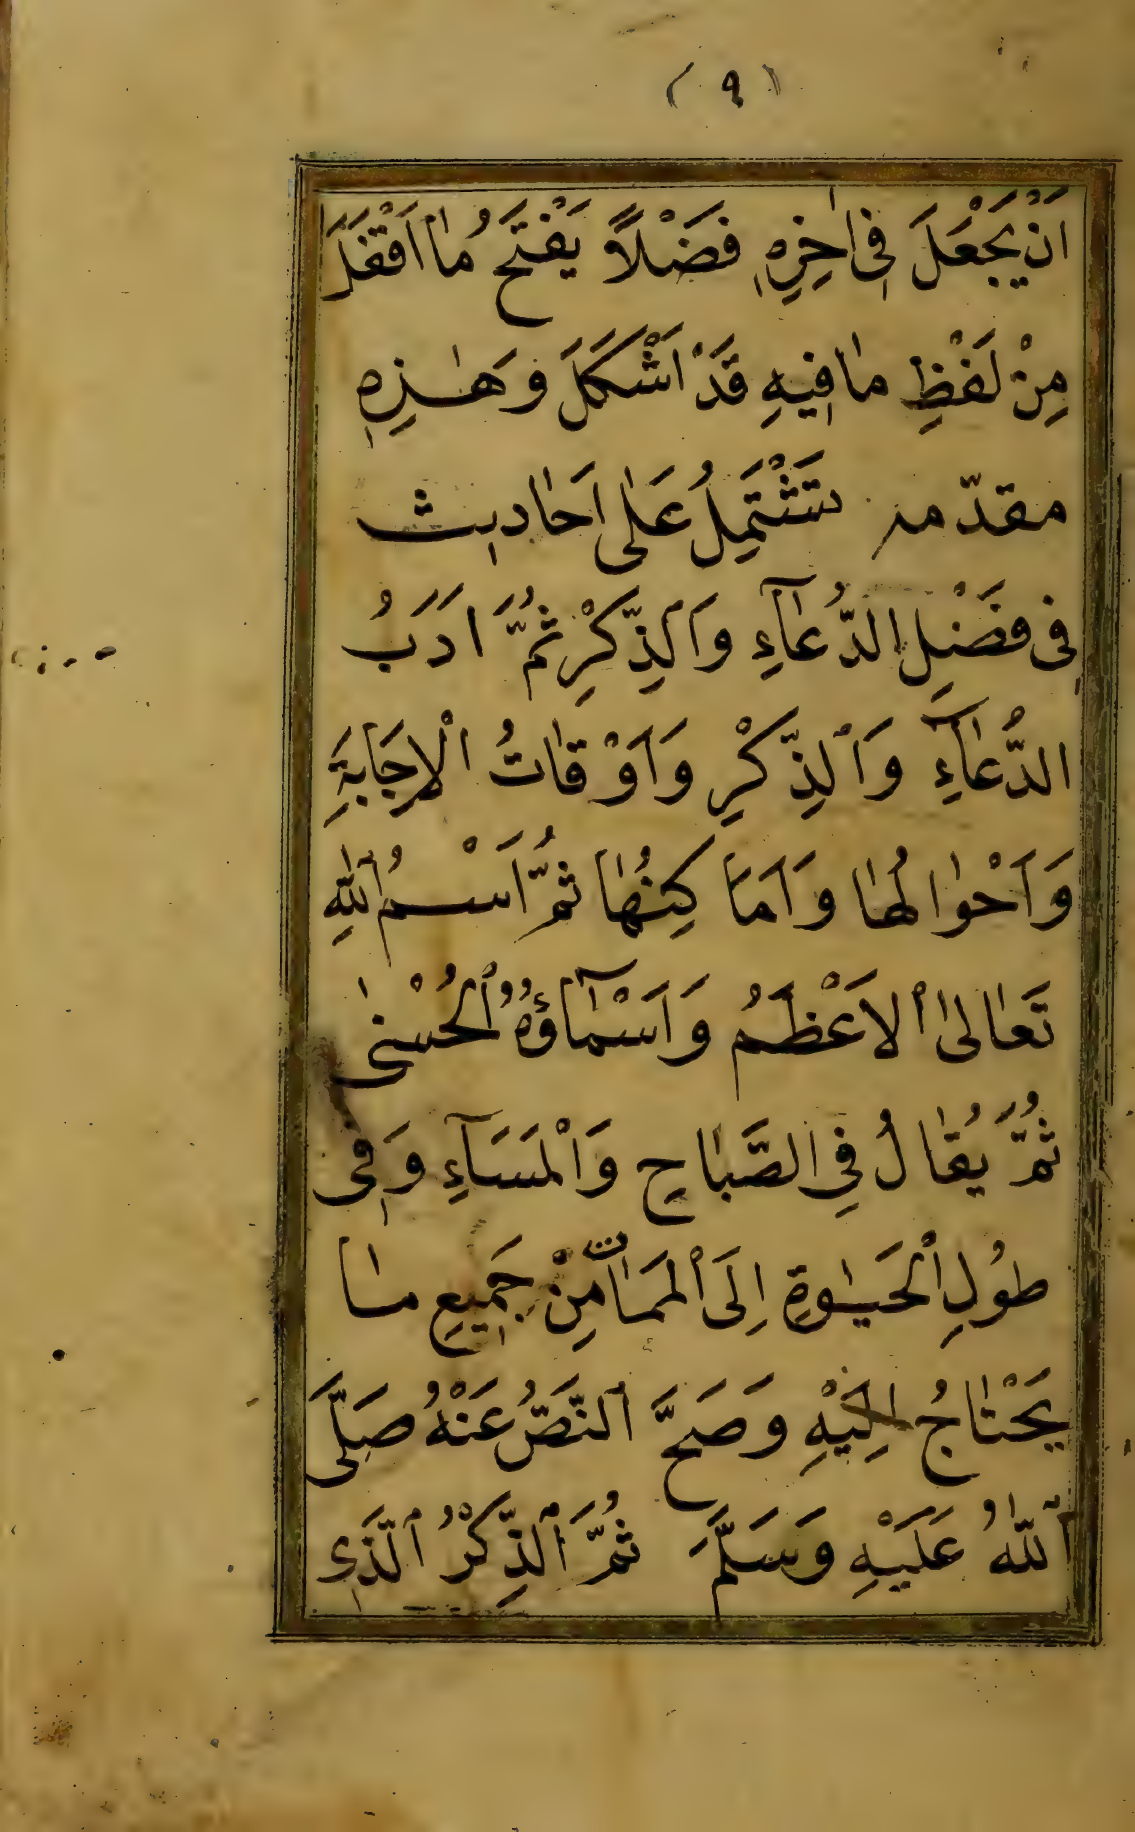 (٩)
اَنْ يَجْعَلَ فِى اٰخِرِهِ فَضْلاً يَفْتَحُ مٰا اَقْفَلَ
مِنْ لَفْظِ مٰا فِيهِ قَدْ اَشْكَلَ وَهٰذِهِ
مقدّمه تَشْتَمِلُ عَلٰى اَحٰادِيث
فِى فَضْلِ الدُّعٰآءِ وَالذِّكْرِ ثُمَّ اَدَبُ
الدُّعٰآءِ وَالذِّكْرِ وَاَوْقٰاتُ الْاِجَابَةِ
وَاَحْوٰالُهٰا وَاَمَاكِنُهٰا ثُمَّ اَسْمُ اللّٰهِ
تَعٰالىٰ الاَعْظَمُ وَاَسْمٰآؤُهُ الْحُسْنىٰ
ثُمَّ يُقٰالُ فِى الصَّبٰاحِ وَالْمَسَآءِ وَفِى
طُولِ الْحَيٰوةِ اِلَى الْمَمٰات مِنْ جَمِيعِ مٰا
يَحْتٰاجُ اِلَيْهِ وَصَحَّ النَّصُّ عَنْهُ صَلَّى
اللّٰهُ عَلَيْهِ وَسَلَّمَ ثُمَّ الذِّكْرُ الَّذِى